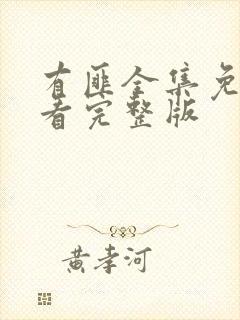 有匪全集免
看完整版
黄孝河